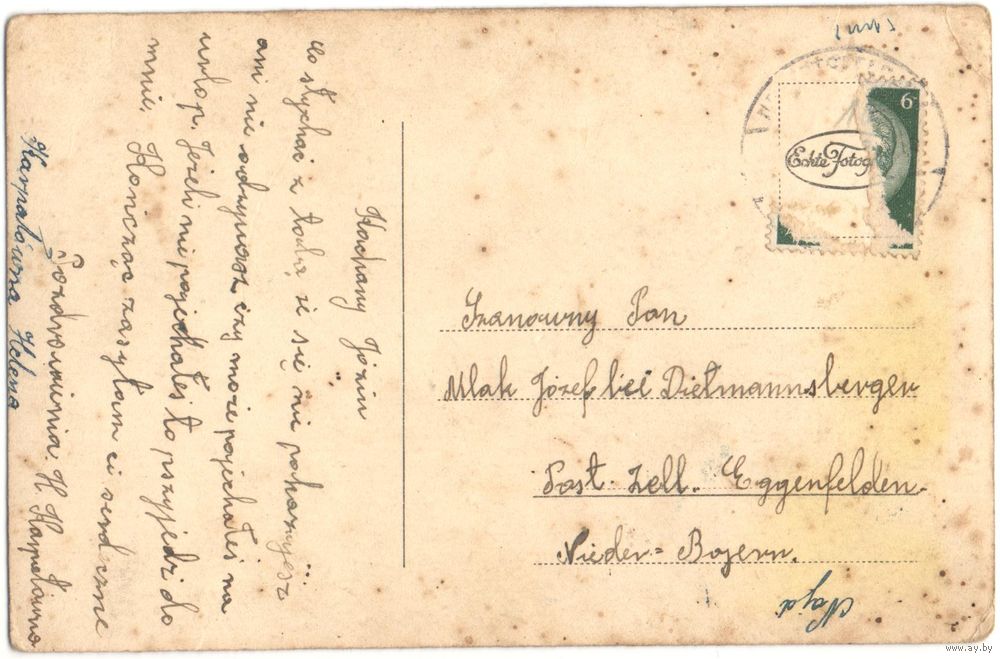 Kochany Józiu
Co słychać z tobą że się ni pokazujesz
ani nie odzywasz czy może pojechałeś na
urlop. Jeżeli ni pojechałeś to pszyjedź do
mnie. Kończąc zasyłam ci serdeczne
Pozdrowienia H. Karpatówna
Karpatówna Helena
6
Echte Fotog
Szanowny Pan
Ulak Józef bei Dietmannsberger
Post. Zell. Eggenfelden.
Nieder= Bayern.
www.ay.by